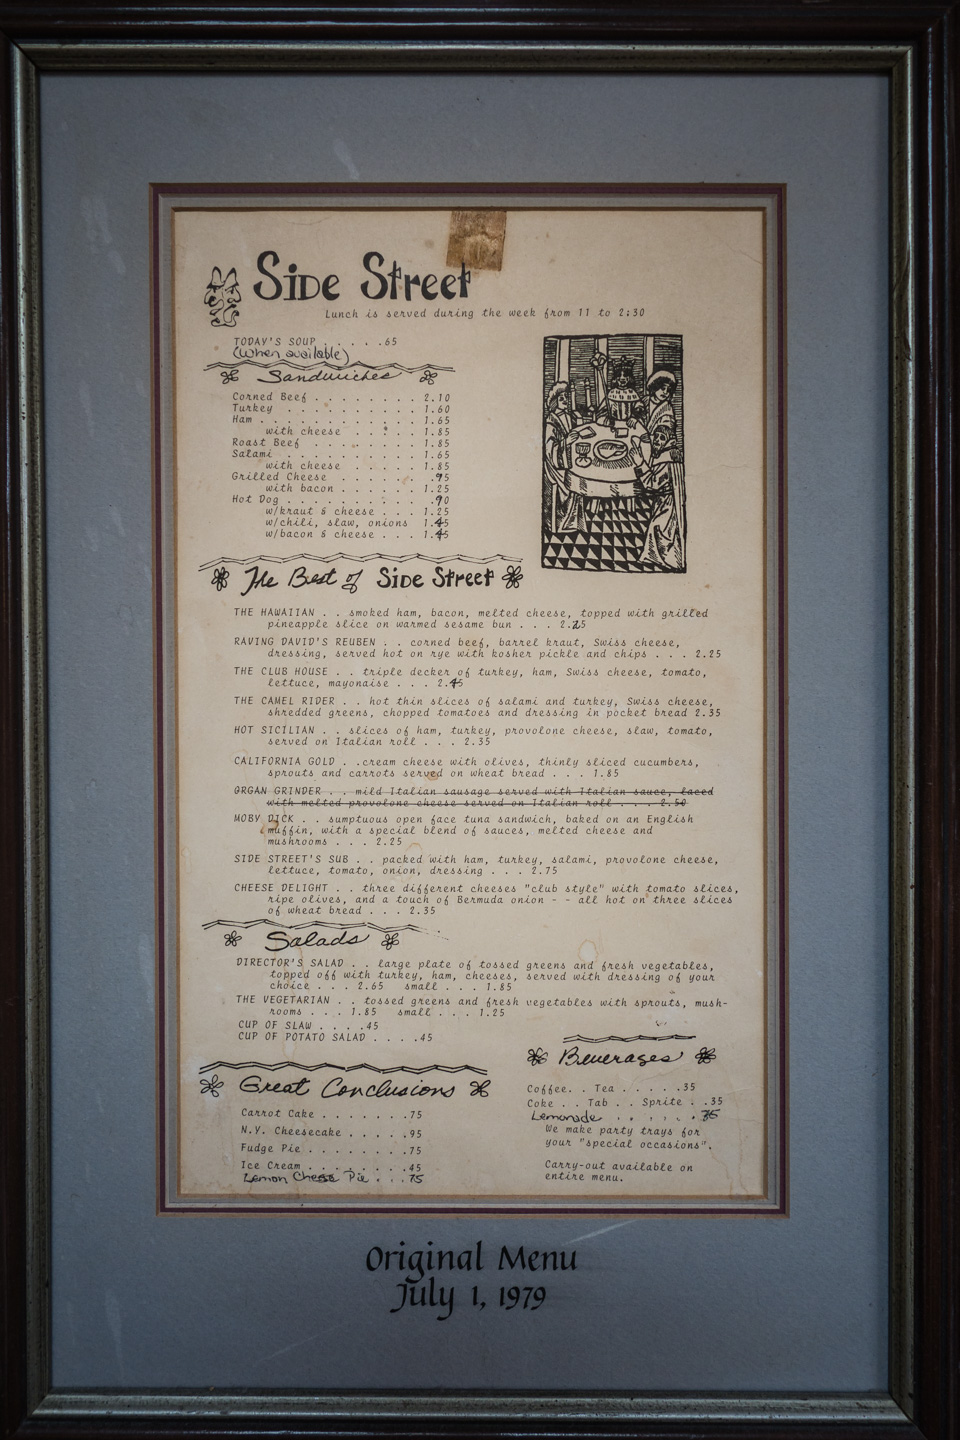 Side Street
Lunch is served during the week from 11 to 2:30
TODAY'S SOUP . . . . .65
(When available)
Sandwiches
Corned Beef . . . . . . . . 2.10
Turkey . . . . . . . . . . 1.60
Ham . . . . . . . . . . . . 1.65
with cheese . . . . . . 1.85
Roast Beef . . . . . . . . 1.85
Salami . . . . . . . . . . 1.65
with cheese . . . . . . 1.85
Grilled Cheese . . . . . . .95
with bacon . . . . . . 1.25
Hot Dog . . . . . . . . . . .90
w/kraut & cheese . . . 1.25
w/chili, slaw, onions 1.45
w/bacon & cheese . . . 1.45
The Best of Side Street
THE HAWAIIAN . . smoked ham, bacon, melted cheese, topped with grilled
pineapple slice on warmed sesame bun . . . 2.25
RAVING DAVID'S REUBEN . . corned beef, barrel kraut, Swiss cheese,
dressing, served hot on rye with kosher pickle and chips . . . 2.25
THE CLUB HOUSE . . triple decker of turkey, ham, Swiss cheese, tomato,
lettuce, mayonaise . . . 2.45
THE CAMEL RIDER . . hot thin slices of salami and turkey, Swiss cheese,
shredded greens, chopped tomatoes and dressing in pocket bread 2.35
HOT SICILIAN . . slices of ham, turkey, provolone cheese, slaw, tomato,
served on Italian roll . . . 2.35
CALIFORNIA GOLD . .cream cheese with olives, thinly sliced cucumbers,
sprouts and carrots served on wheat bread . . . 1.85
ORGAN GRINDER . . mild Italian sausage served with Italian sauce, laced
with melted provolone cheese served on Italian roll . . . 2.50
MOBY DICK . . sumptuous open face tuna sandwich, baked on an English
muffin, with a special blend of sauces, melted cheese and
mushrooms . . . 2.25
SIDE STREET'S SUB . . packed with ham, turkey, salami, provolone cheese,
lettuce, tomato, onion, dressing . . . 2.75
CHEESE DELIGHT . . three different cheeses "club style" with tomato slices,
ripe olives, and a touch of Bermuda onion - - all hot on three slices
of wheat bread . . . 2.35
Salads
DIRECTOR'S SALAD . . large plate of tossed greens and fresh vegetables,
topped off with turkey, ham, cheeses, served with dressing of your
choice . . . 2.65 small . . . 1.85
THE VEGETARIAN . . tossed greens and fresh vegetables with sprouts, mush-
rooms . . . 1.85 small . . . 1.25
CUP OF SLAW . . . .45
CUP OF POTATO SALAD . . . .45
Great Conclusions
Carrot Cake . . . . . . .75
N.Y. Cheesecake . . . . .95
Fudge Pie . . . . . . . .75
Ice Cream . . . . . . . .45
Lemon Chess Pie . . . .75
Beverages
Coffee. . Tea . . . . . .35
Coke . . Tab . . Sprite . .35
Lemonade . . . . . .
We make party trays for
your "special occasions".
Carry-out available on
entire menu.
Original Menu
July 1, 1979